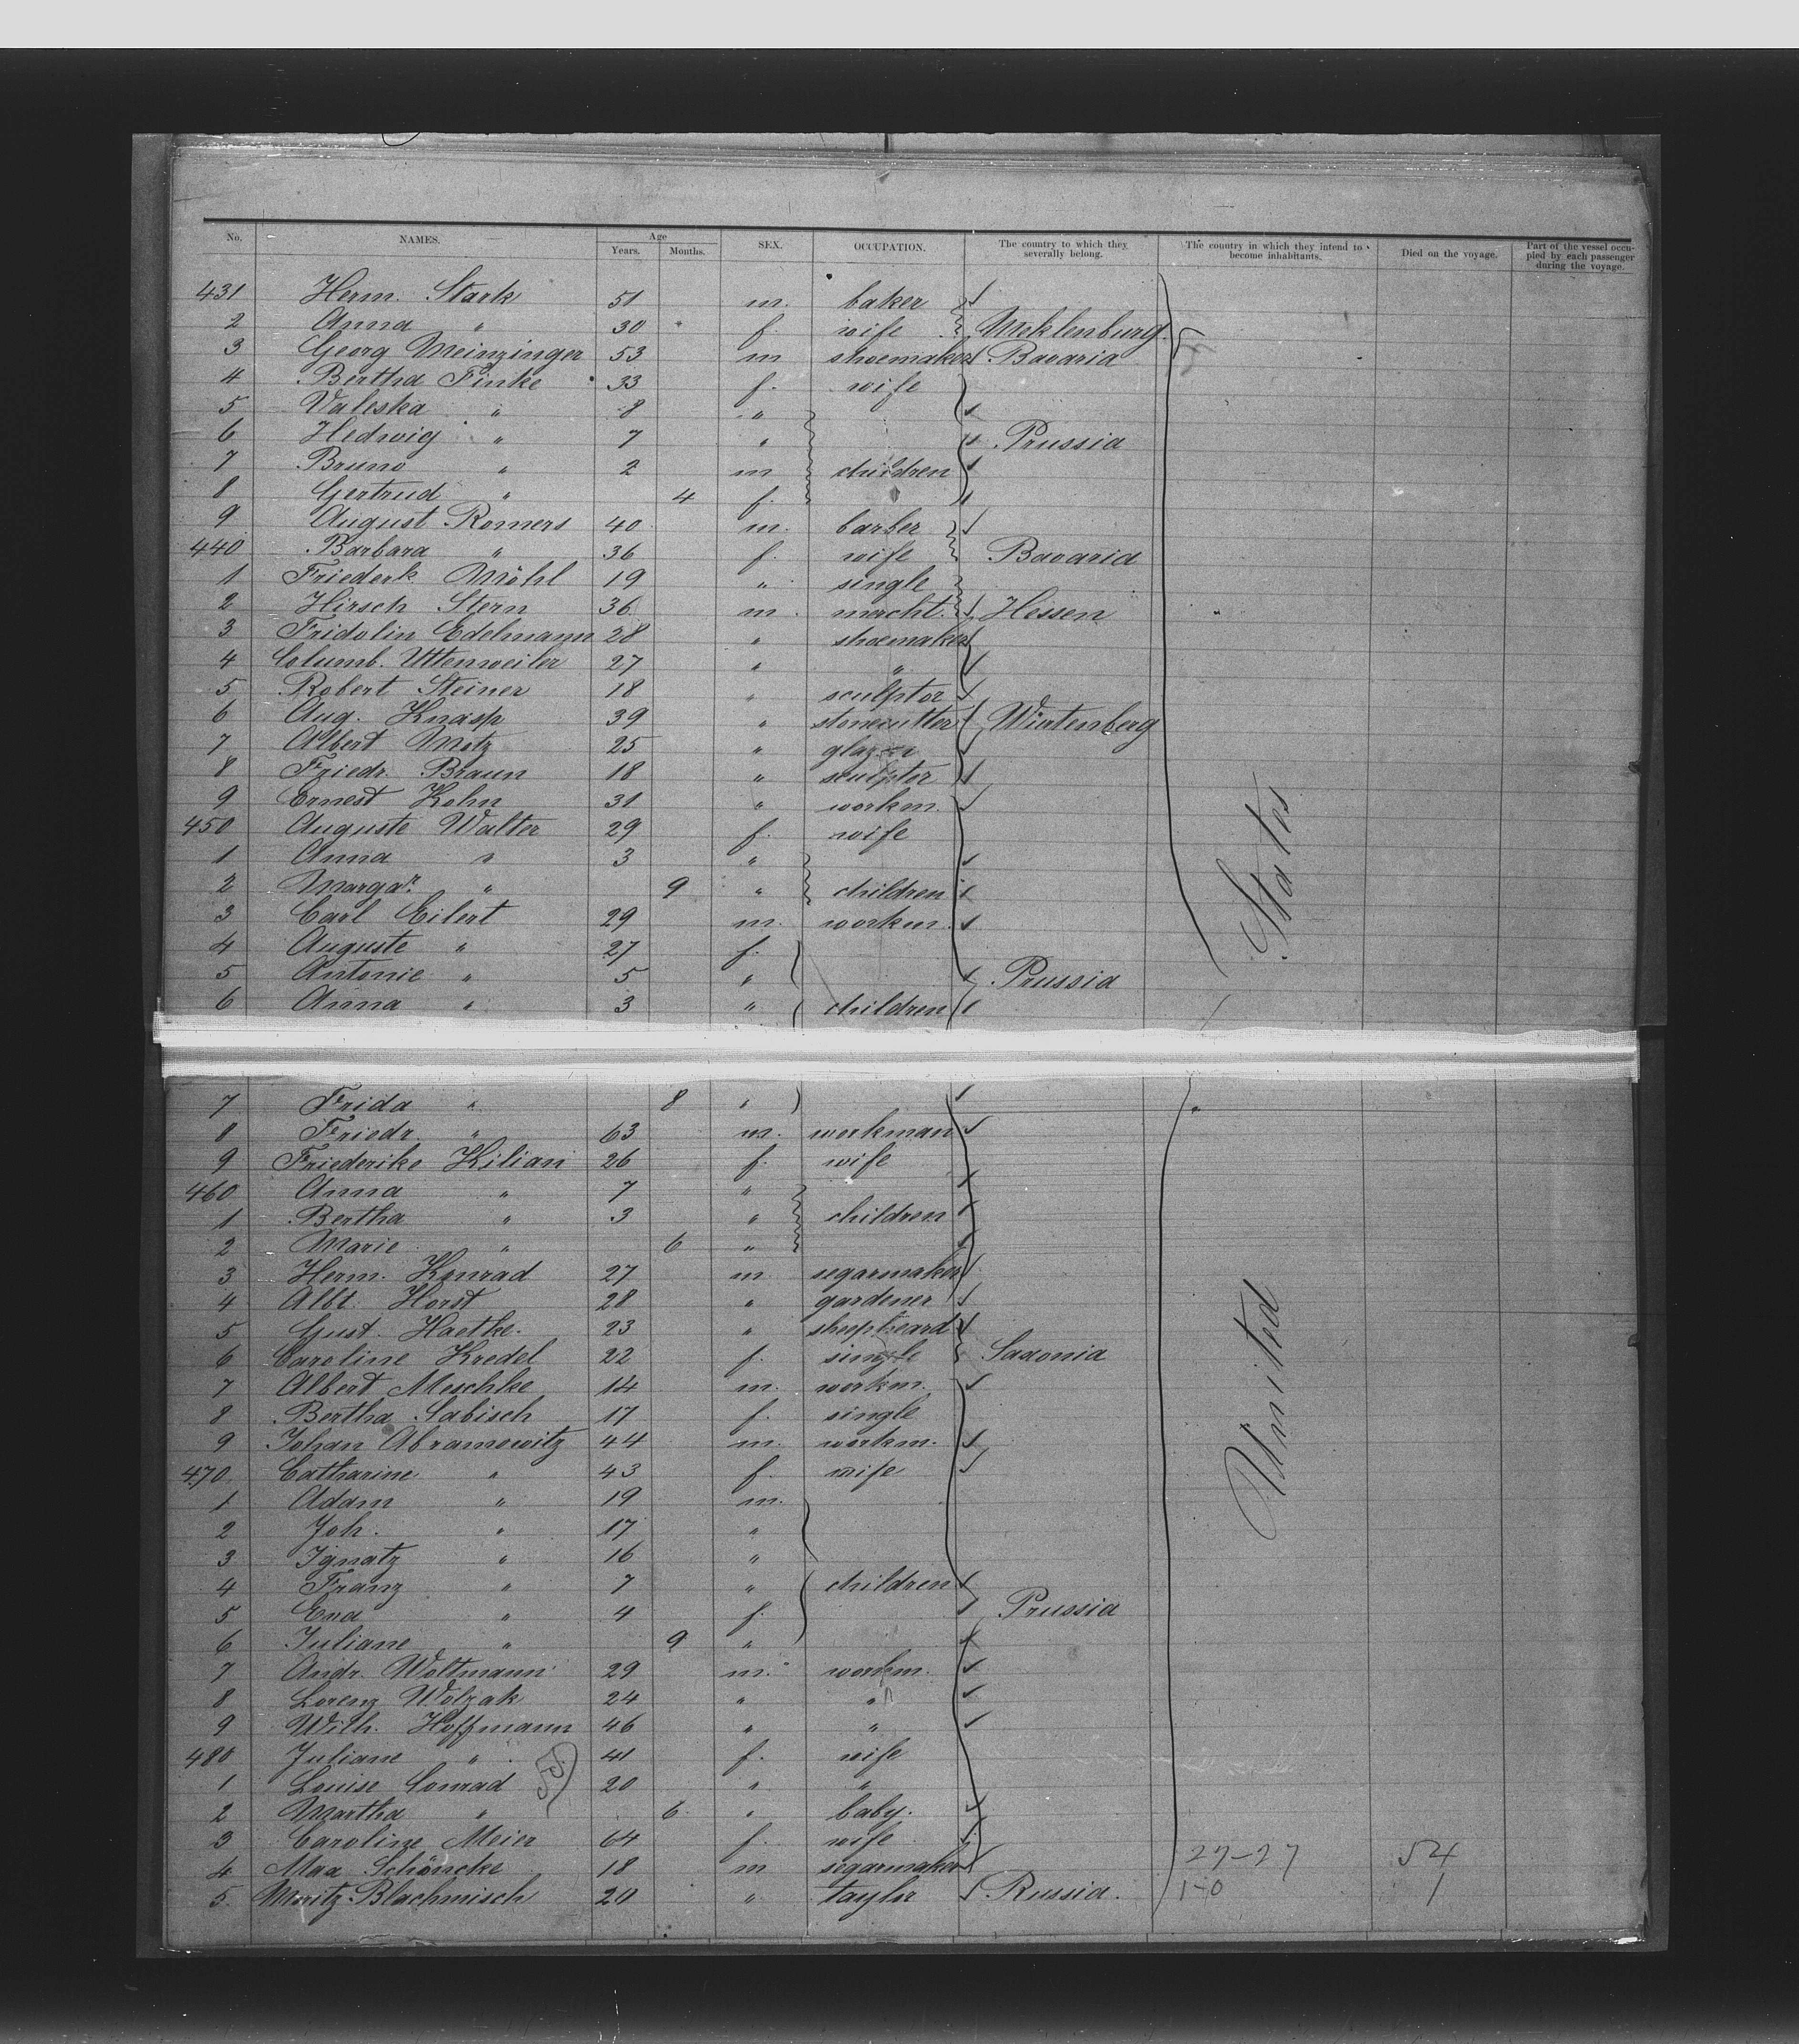 No. NAMES. Age Years. Months. SEX. OCCUPATION. The country to which they severally belong. The country in which they intend to become inhabitants. Died on the voyage. Part of the vessel occupied by each passenger during the voyage.
431 Herm. Stark 51 m. baker
2 Anna " 30 f. wife Meklenburg
3 Georg Meinzinger 53 m shoemaker Bavaria
4 Bertha Finke 33 f. wife
5 Valeska " 8 "
6 Hedwig " 7 " Prussia
7 Bruno " 2 m children
8 Gertrud " 4 f.
9 August Romers 40 m. barber
440 Barbara " 36 f. wife Bavaria
1 Friederk Möhl 19 " single
2 Hirsch Stern 36 m. mercht. Hessen
3 Fridolin Edelmann 28 " shoemaker
4 Columb. Uttenweiler 27 " "
5 Robert Steiner 18 " sculptor
6 Aug. Knasp 39 " stonecutter Wirtenberg
7 Albert Motz 25 " glazer
8 Friedr. Braun 18 " sculptor
9 Ernest Kohn 31 " workm.
450 Auguste Walter 29 f. wife
1 Anna " 3 "
2 Margar. " 9 " children
3 Carl Eilert 29 m. workm.
4 Auguste " 27 f.
5 Antonie " 5 " Prussia
6 Anna " 3 " children
7 Frida " 8 "
8 Friedr. " 63 m. workman
9 Friederike Kilian 26 f. wife
460 Anna " 7 "
1 Bertha " 3 " children
2 Marie " 6 "
3 Herm. Konrad 27 m. segarmaker
4 Albt. Horst 28 " gardener
5 Gust. Haetke. 23 " sheepheard
6 Caroline Kredel 22 f. single Saxonia
7 Albert Meschke 14 m. workm.
8 Bertha Sabisch 17 f. single
9 Johan Abramowitz 44 m. workm.
470 Catharine " 43 f. wife
1 Adam " 19 m.
2 Joh. " 17 "
3 Ignatz " 16 "
4 Franz " 7 " children
5 Eva " 4 f. Prussia
6 Juliane " 9 "
7 Andr. Woltmann 29 m. workm.
8 Lorenz Wolzak 24 " "
9 Wilh. Hoffmann 46 " "
480 Juliane " 41 f. wife
1 Louise Conrad 20 " "
2 Martha " 6 " baby.
3 Caroline Meier 64 f. wife
4 Max Schöncke 18 m segarmaker 27-27 54
5. Moritz Blachmisch 20 " taylor Russia. 1-0 1
United States